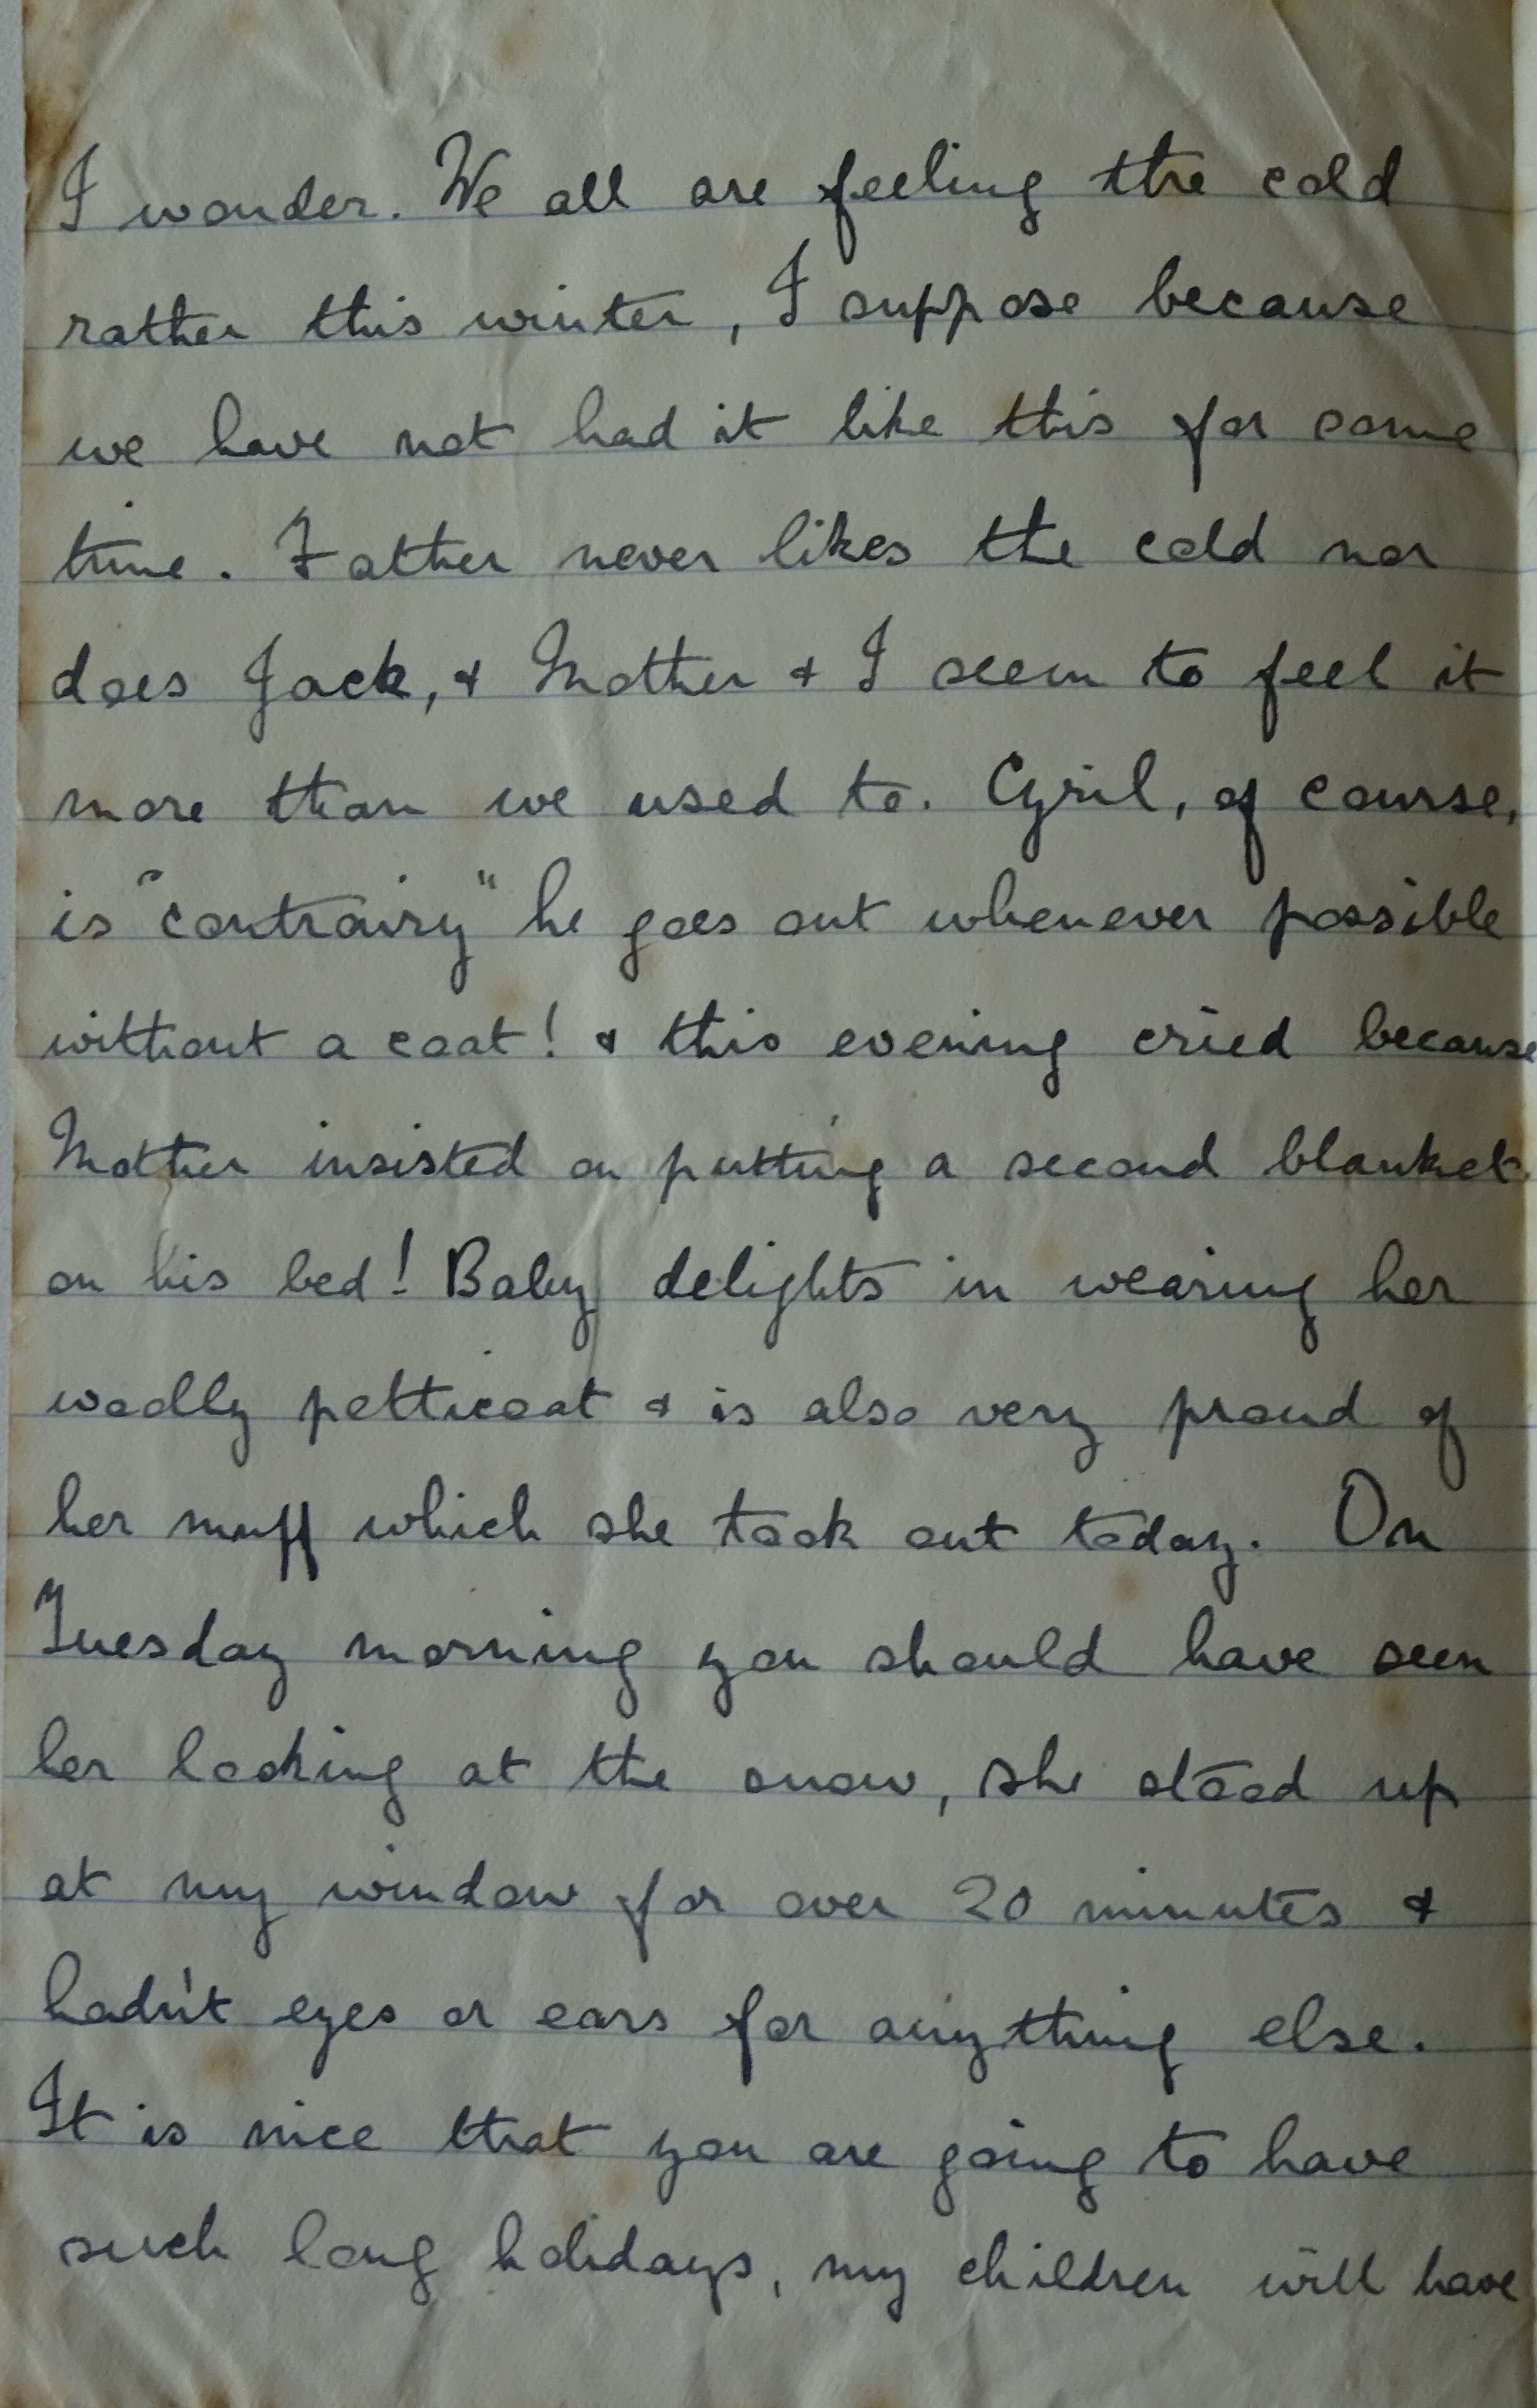 I wonder. We all are feeling the cold
rather this winter, I suppose because
we have not had it like this for some
time. Father never likes the cold nor
does Jack, & Mother & I seem to feel it
more than we used to. Cyril, of course,
is "contrairy" he goes out whenever possible
without a coat! & this evening cried because
Mother insisted on putting a second blanket
on his bed! Baby delights in wearing her
woolly petticoat & is also very proud of
her muff which she took out today. On
Tuesday morning you should have seen
her looking at the snow, she stood up
at my window for over 20 minutes &
hadn't eyes or ears for anything else.
It is nice that you are going to have
such long holidays, my children will have